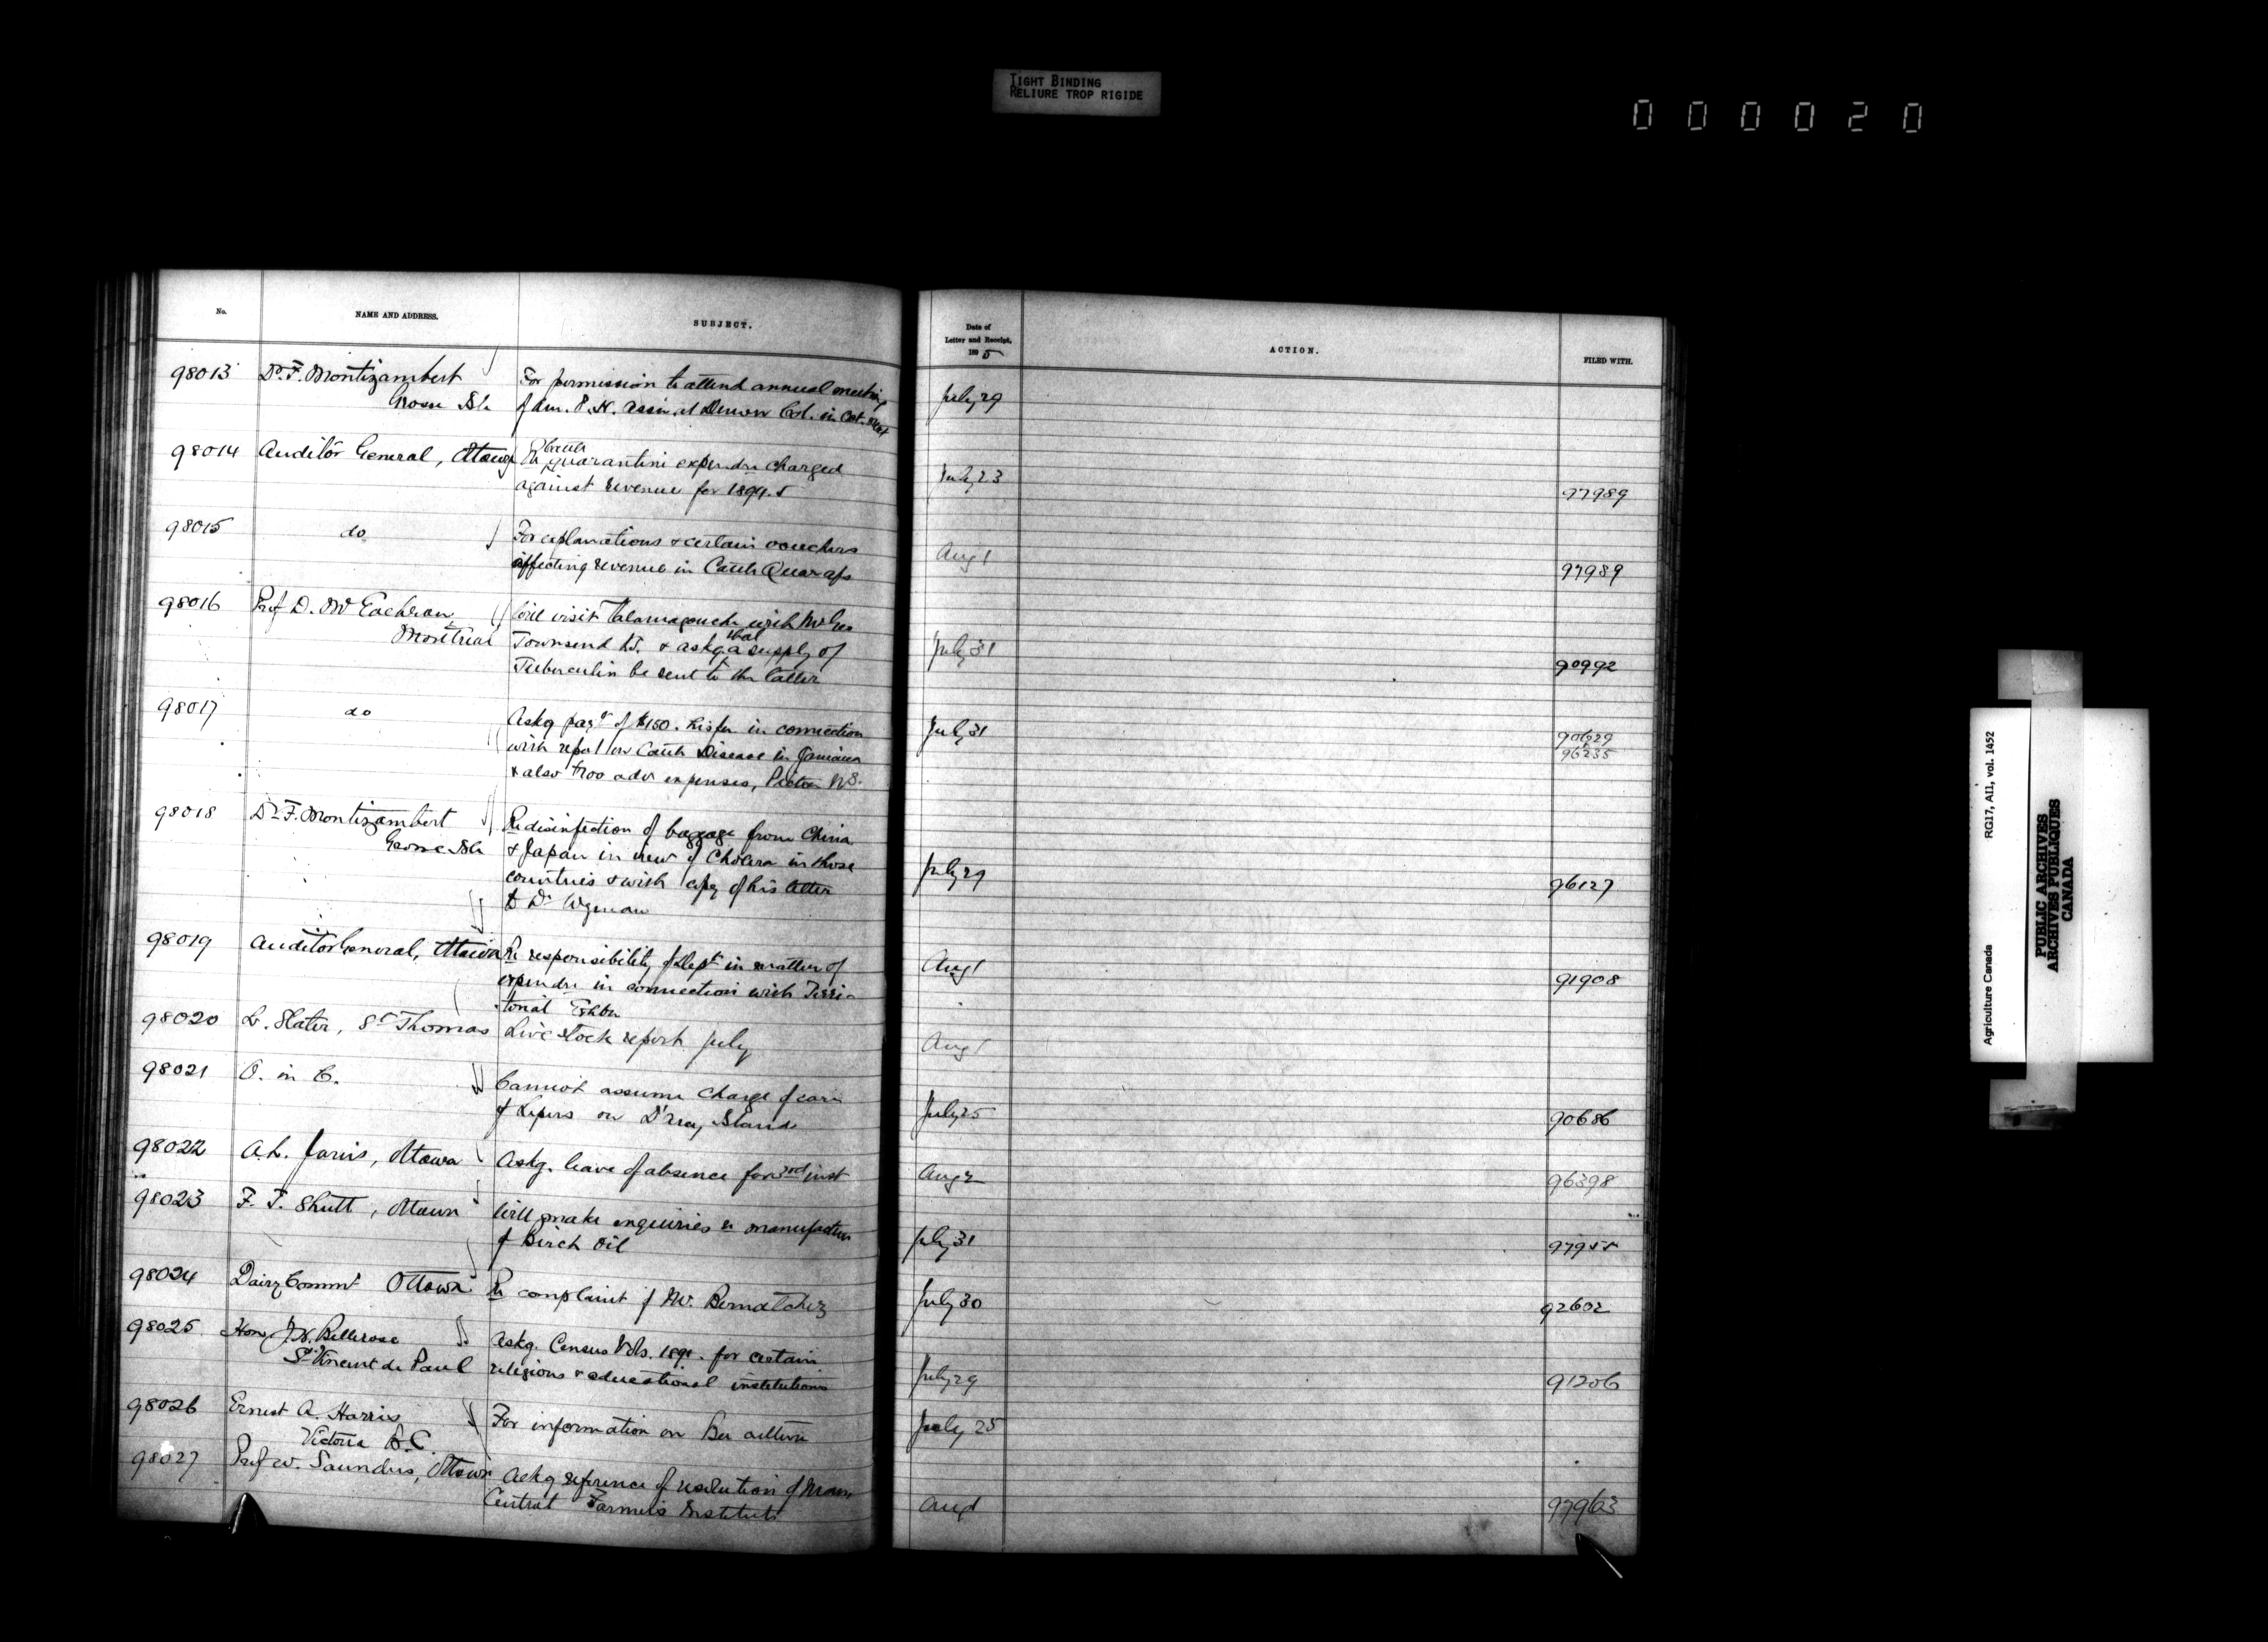 TIGHT BINDING
RELIURE TROP RIGIDE
000020
No. NAME AND ADDRESS. SUBJECT.
Date of
Letter and Receipt,
1895
ACTION. FILED WITH.
98013 Dr. F. Montizambert For permission to attend annual meeting July 29
Grosse Isle of Am. P. H. Assn. at Denver Col. in Oct. next
98014 Auditor General, Ottawa Re Cattle Quarantine expendre charged July 23
against revenue for 1894.5 97989
98015 do For explanations & certain vouchers Aug 1
affecting revenue in Cattle Quar a/c 97989
98016 Prof D. McEachran Will visit Tatamagouche with Mr Geo
Montreal Townsend & askg that a supply of July 31
Tuberculin be sent to the latter 90992
98017 do Askg payt of $150. his fee in connection July 31
with report on Cattle Disease in Jamaica 96235
& also $700 adv expenses, Pictou N.S.
98018 Dr F. Montizambert Re disinfection of baggage from China
Grosse Isle & Japan in view of Cholera in those
countries & with copy of his letter July 29 96127
to Dr Wyman
98019 Auditor General, Ottawa Re responsibility of Dept in matter of Aug 1
expendre in connection with Terri- 91908
torial Exhbn
98020 L. Slater, St Thomas Live Stock report July Aug 1
98021 O. in C. Cannot assume charge of care
of Lepers on D'arcy Island July 25 90686
98022 A. L. Jarvis, Ottawa Askg. leave of absence for 3rd inst Aug 2 96398
98023 F. T. Shutt, Ottawa Will make enquiries re manufacture
of Birch Oil July 31 97955
98024 Dairy Commr Ottawa Re complaint of Mr. Bernatchez July 30 92602
98025 Hon. J. H. Bellerose Askg. Census Vols. 1891. for certain
St Vincent de Paul religious & educational institutions July 29 91206
98026 Ernest A. Harris For information on Bee culture July 25
Victoria B.C.
98027 Prof W. Saunders, Ottawa Askg reference of resolution of Man
Central Farmers Institute Aug 1 97963
Agriculture Canada RG17, AII, vol. 1452
PUBLIC ARCHIVES
ARCHIVES PUBLIQUES
CANADA